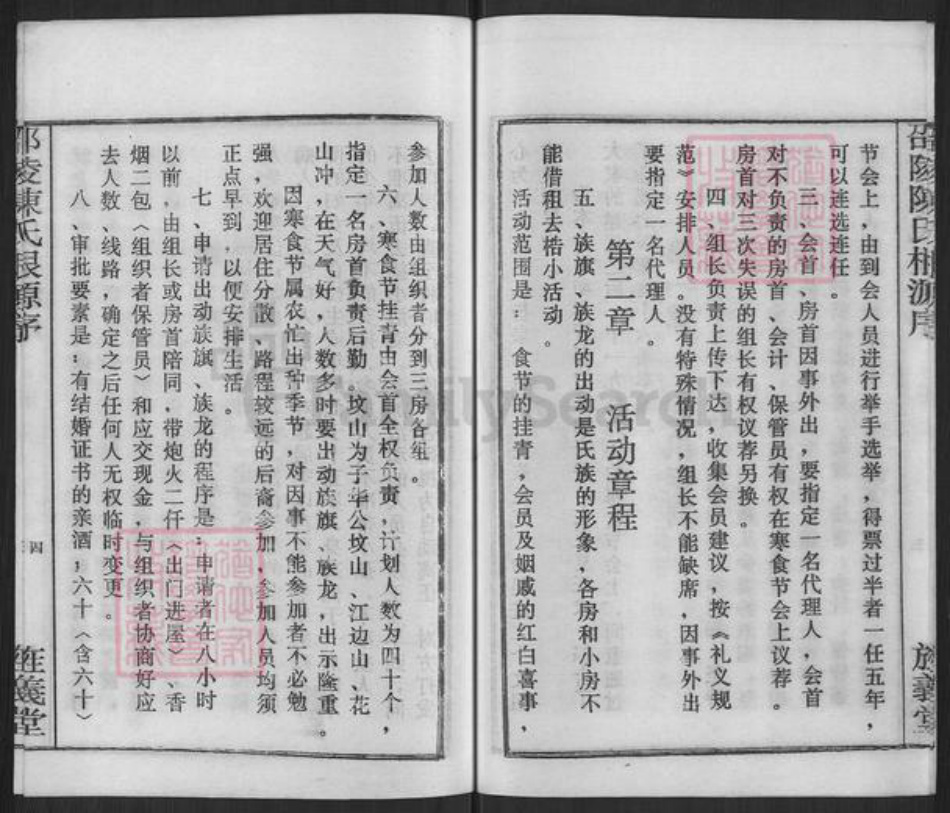 节会上，由到会人员进行举手选举，得票过半者一任五年，
可以连选连任。
三、会首、房首因事外出，要指定一名代理人，会首
对不负责的房首、会计、保管员有权在寒食节会上议荐。
房首对三次失误的组长有权议荐另换。
四、组长负责上传下达，收集会员建议，按《礼义规
范》安排人员。没有特殊情况，组长不能缺席，因事外出
要指定一名代理人。
第二章 活动章程
五、族旗、族龙的出动是氏族的形象，各房和小房不
能借租去梏小活动。
活动范围是：食节的挂青，会员及姻戚的红白喜事，
参加人数由组织者分到三房各组。
六、寒食节挂青由会首全权负责，计划人数为四十个，
指定一名房首负责后勤。坟山为子华公坟山、江边山、花
山冲，在天气好，人数多时要出动族旗、族龙，出示隆重。
因寒食节属农忙出种季节，对因事不能参加者不必勉
强，欢迎居住分散、路程较远的后裔参加，参加人员均须
正点早到，以便安排生活。
七、申请出动族旗、族龙的程序是：申请者在八小时
以前，由组长或房首陪同，带炮火二仟（出门进屋）、香
烟二包（组织者保管员）和应交现金，与组织者协商好应
去人数、线路，确定之后任何人无权临时变更。
八、审批要素是：有结婚证书的亲酒；六十（含六十）
邵陵陈氏根源序
四
旌義堂